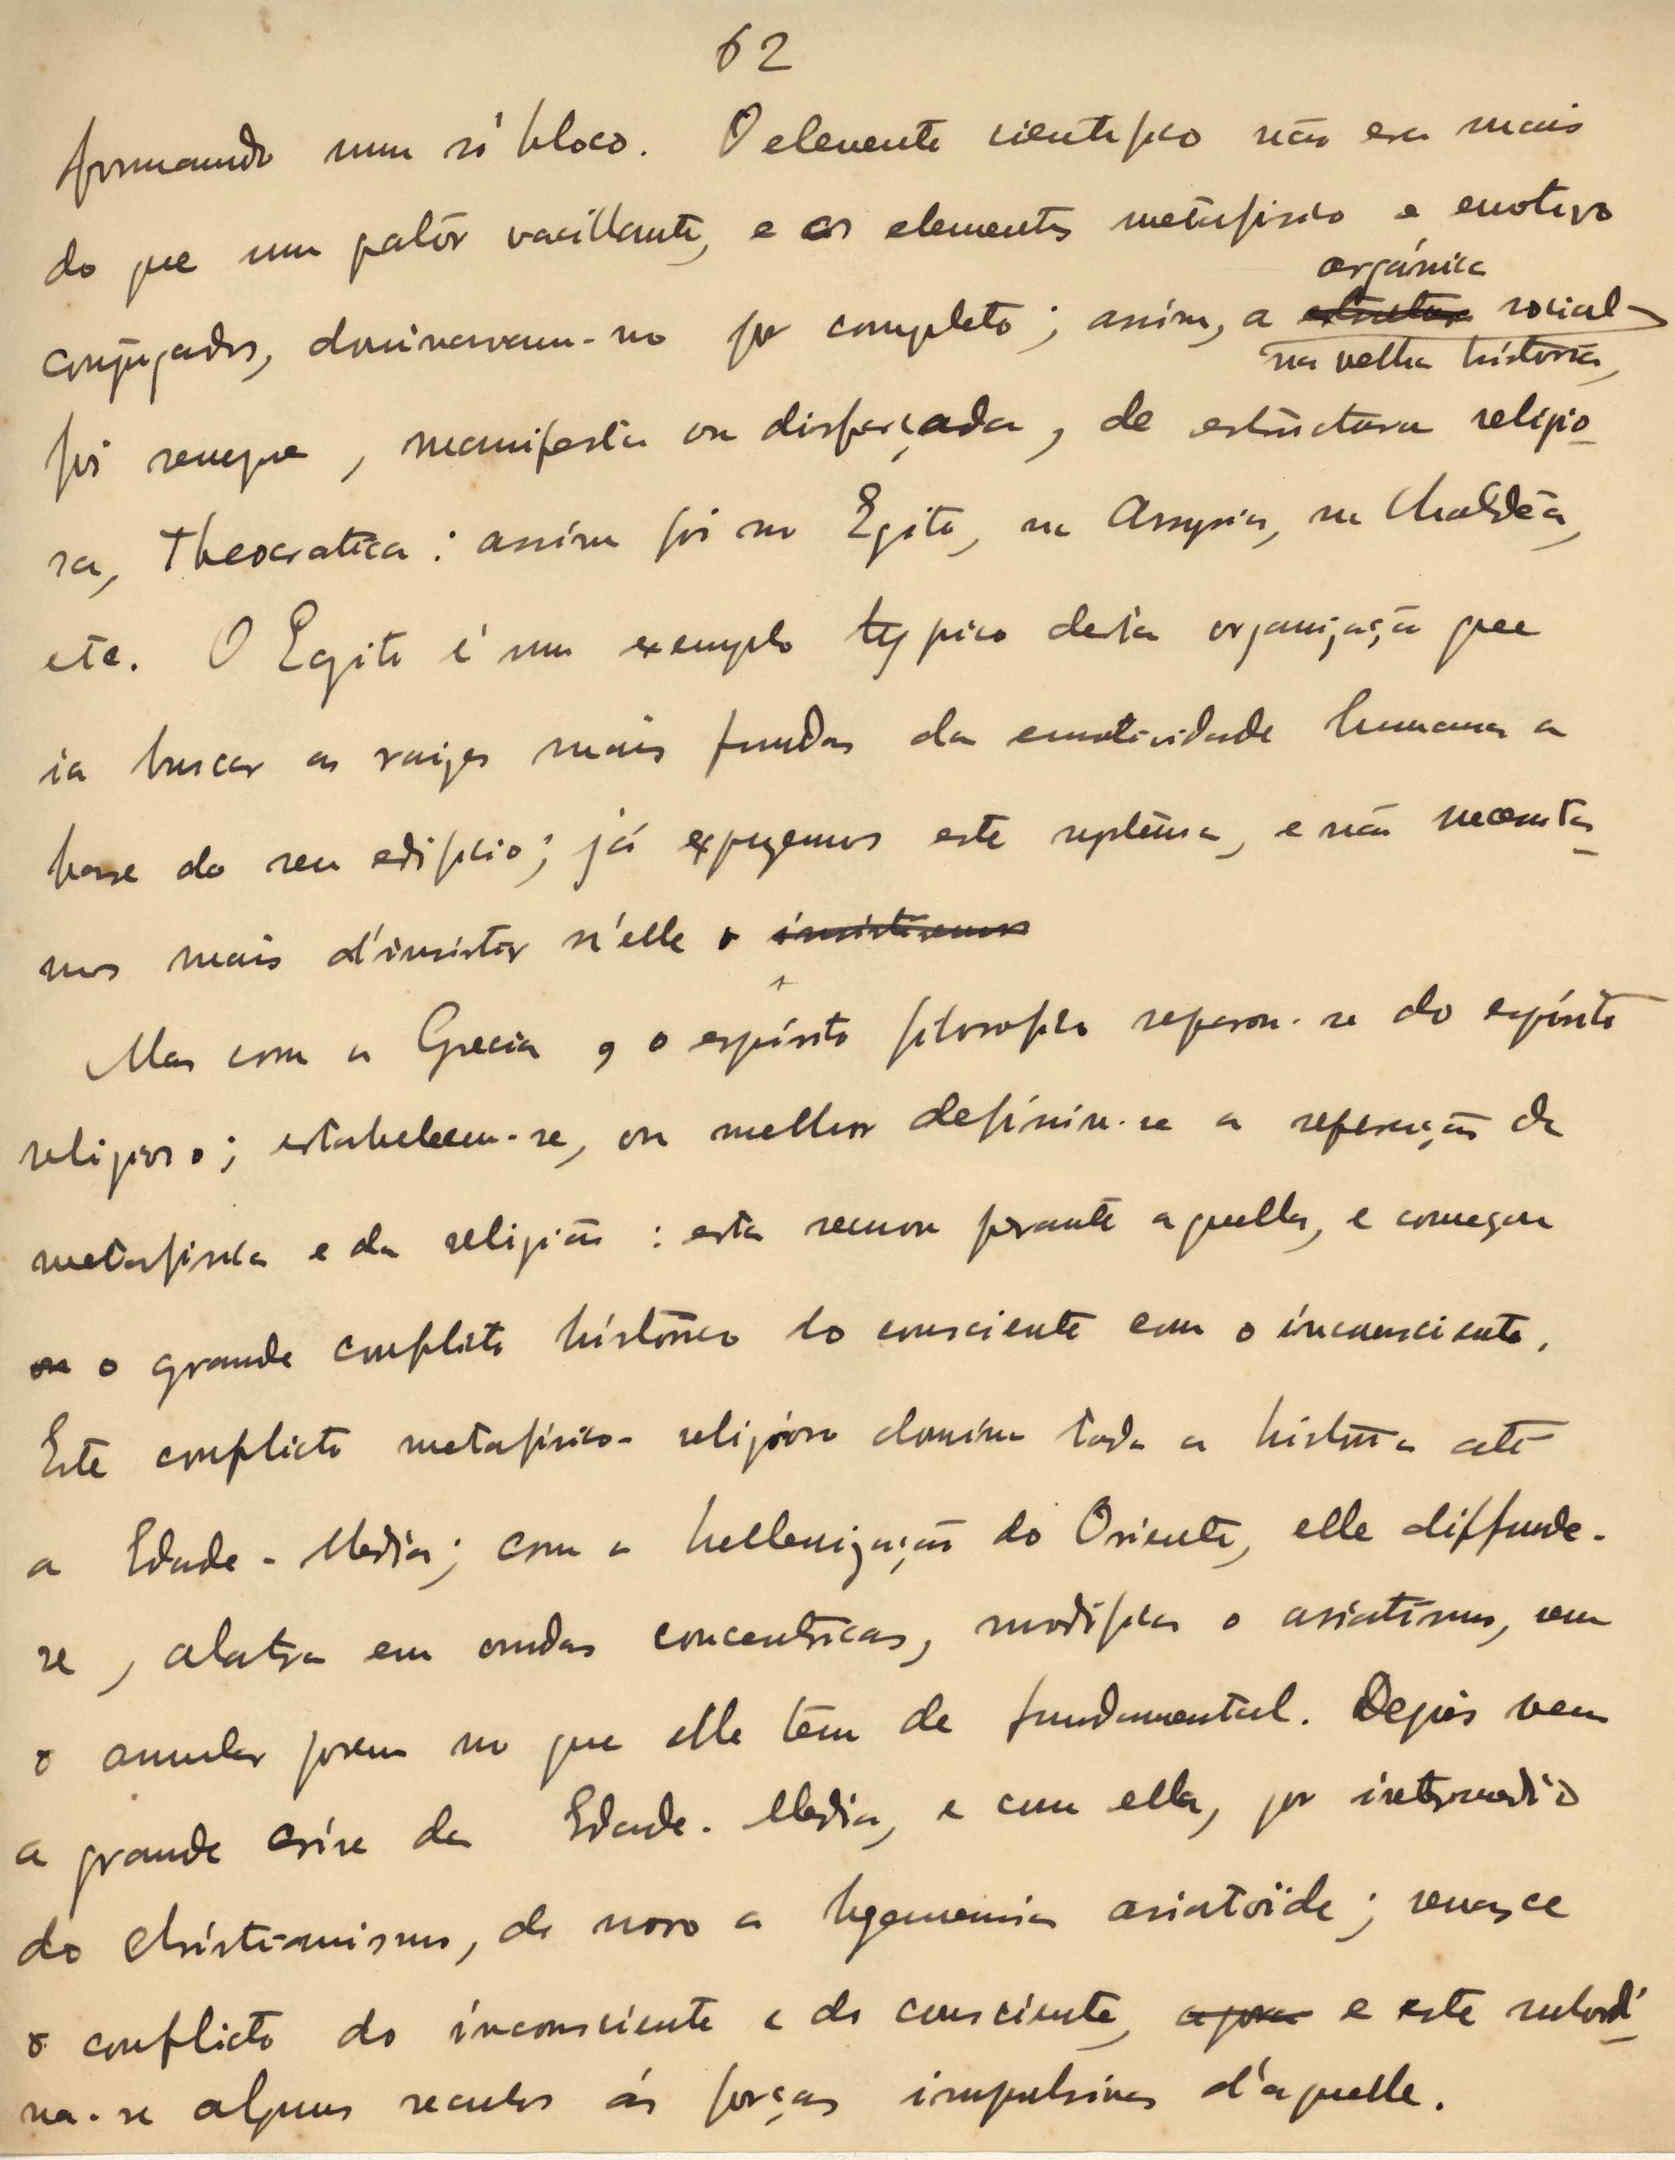 62
formando num só bloco. O elemento scientifico não era mais
do que um palôr vacillante, e os elementos metafisico e emotivo
orgánica
conjugados, dominavam-no por completo; assim, a estructura social
na velha historia,
foi sempre, manifesta ou disfarçada, de estructura religio-
sa, theocratica: assim foi no Egito, na Assyria, na Chaldêa,
etc. O Egito é um exemplo typico desta organização que
ia buscar as raizes mais fundas da emotividade humana a
base do seu edificio; já expuzemos este systêma, e não necessita-
mos mais d'insistir n'elle o insistiremos
Mas com a Grecia, o espírito filosofico separou-se do espírito
religioso; estabeleceu-se, ou melhor definiu-se a separação da
metafisica e da religião: esta recuou perante aquella, e começou
ou o grande conflito histórico do consciente com o inconsciente.
Este conflicto metafísico-religioso domína toda a história até
a Edade-Media; com a hellenização do Oriente, elle diffunde-
se, alastra em ondas concentricas, modifica o asiatismo, sem
o annular porem no que elle tem de fundamental. Depois vem
a grande críse da Edade-Media, e com ella, por intermedio
do christianismo, de novo a hegemonia asiatoïde; renasce
o conflicto do inconsciente e do consciente, agora e este subordi-
na-se alguns seculos ás forças impulsivas d'aquelle.